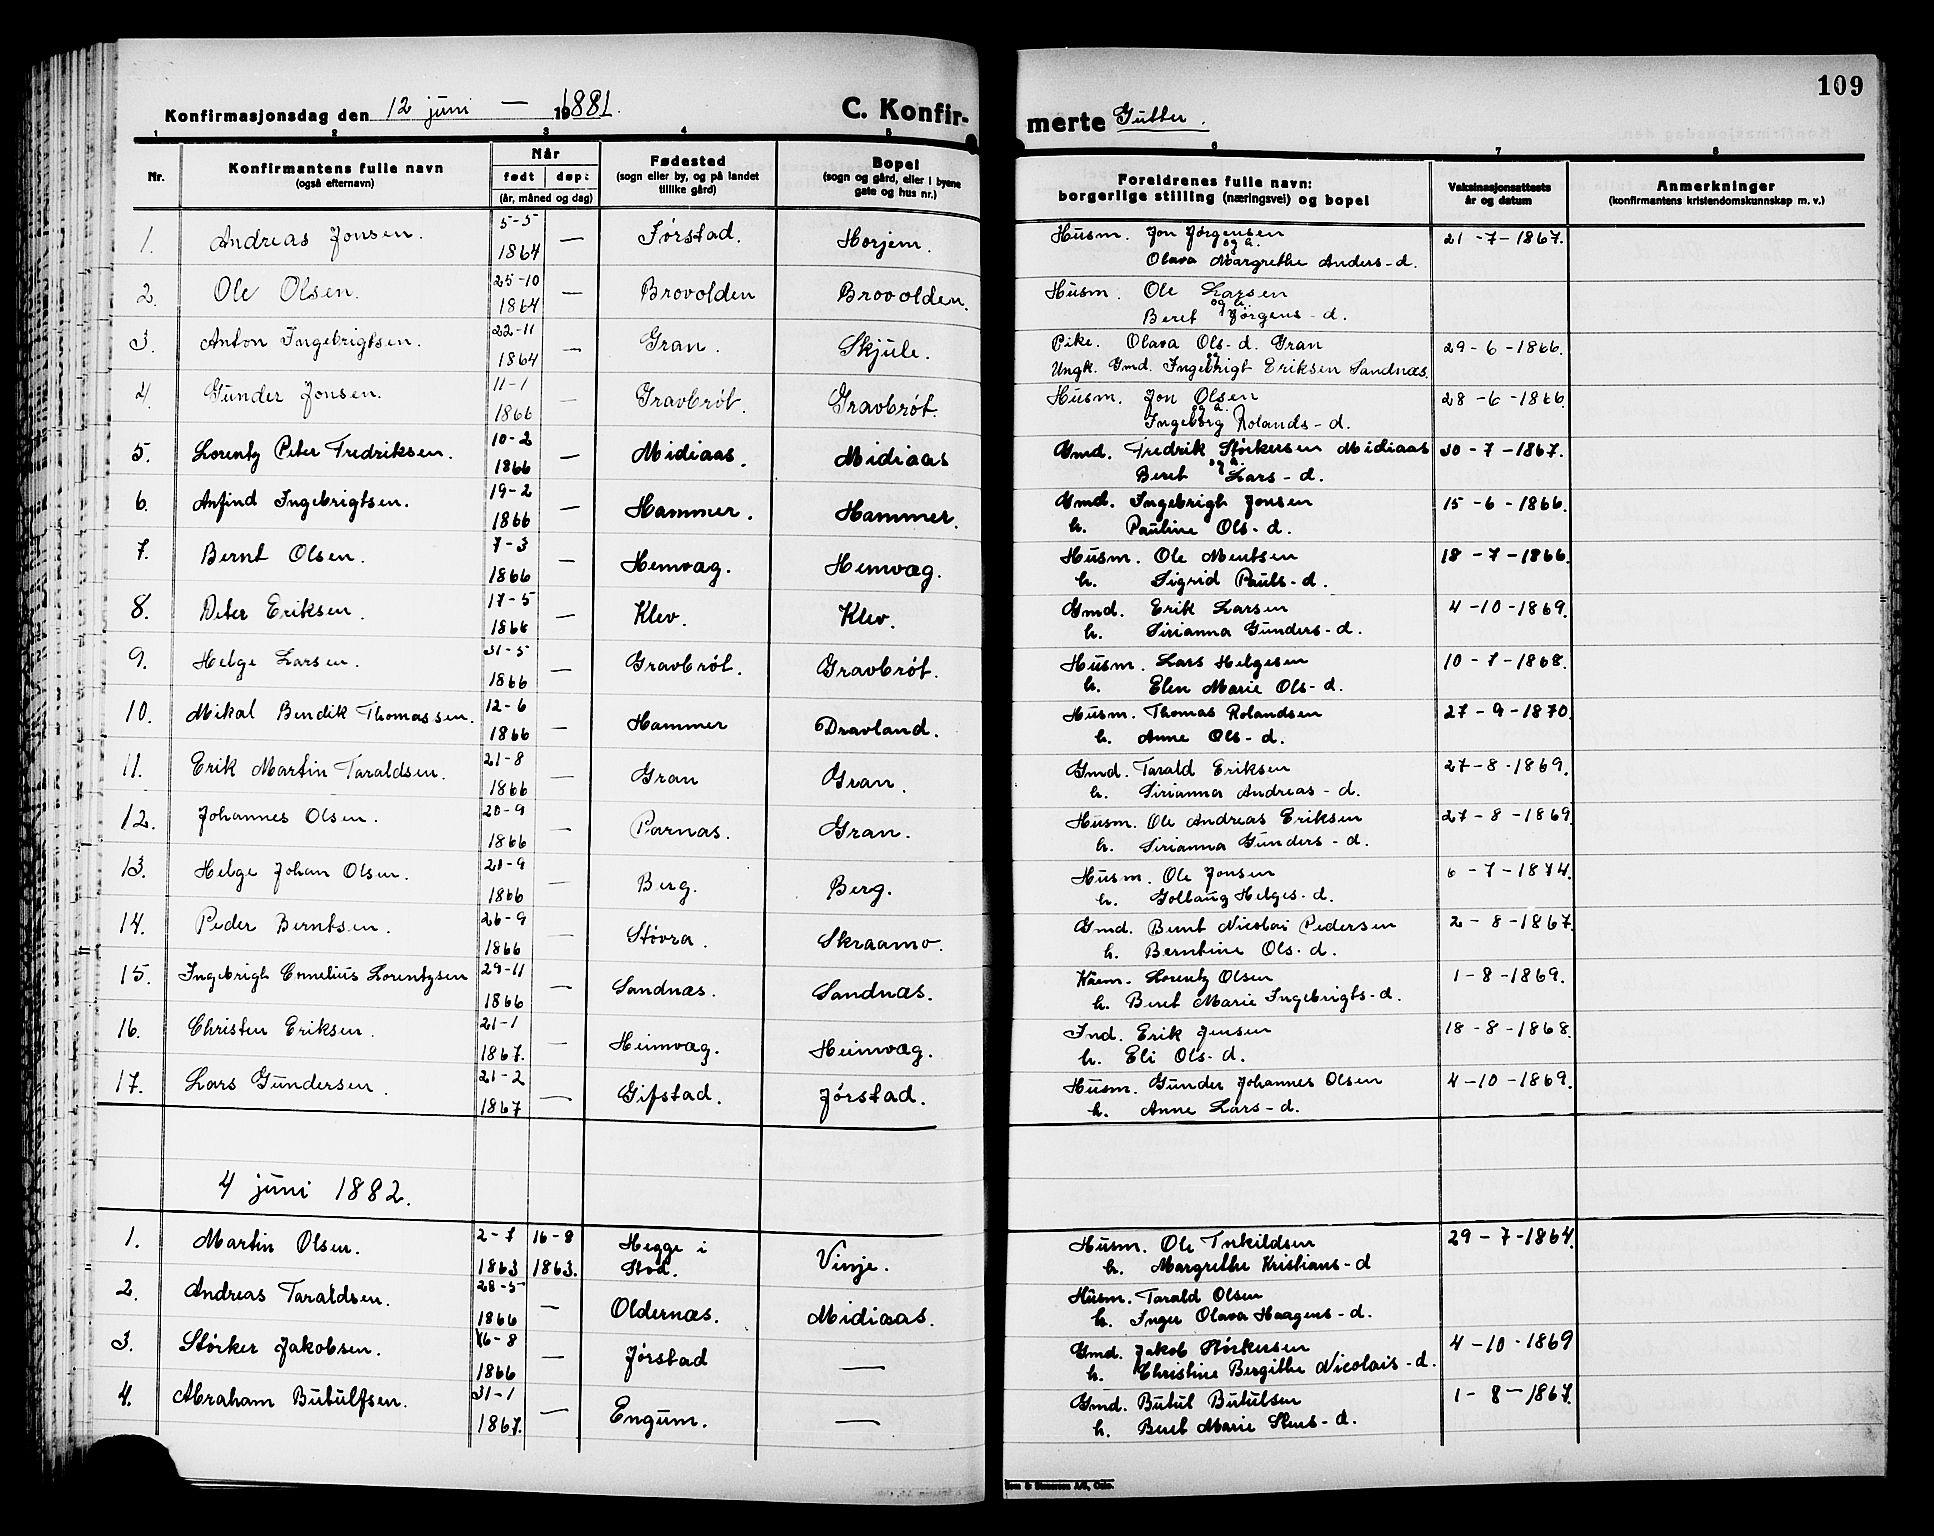 109
Konfirmasjonsdag den 12 juni — 1881. C. Konfir-merte Gutter.
1 2 3 4 5 6 7 8
Nr. Konfirmantens fulle navn (også efternavn) Når født døpt (år, måned og dag) Fødested (sogn eller by, og på landet tillike gård) Bopel (sogn og gård, eller i byene gate og hus nr.) Foreldrenes fulle navn: borgerlige stilling (næringsvei) og bopel Vaksinasjonsattests år og datum Anmerkninger (konfirmantens kristendomskunnskap m. v.)
1. Andreas Jonsen. 5-5 1864 — Jørstad. Horjem. Husm. Jon Jørgensen og a. Olava Margrethe Anders-d. 21-7-1867.
2. Ole Olsen. 25-10 1864 — Brovolden Brovolden. Husm. Ole Larsen og a. Beret Jørgens-d.
3. Anton Ingebrigtsen. 22-11 1864 — Gran. Skjule. Pike. Olava Ols-d. Gran og Ungk. Gmd. Ingebrigt Eriksen Sandnæs. 29-6-1866.
4. Gunder Jonsen. 11-1 1866 — Gravbrøt. Gravbrøt. Husm. Jon Olsen og a. Ingeborg Rolands-d. 28-6-1866.
5. Lorentz Peter Fredriksen. 10-2 1866 — Midiaas. Midiaas Gmd. Fredrik Størkersen Midiaas og a. Beret Lars-d. 30-7-1867.
6. Anfind Ingebrigtsen. 19-2 1866 — Hammer. Hammer. Gmd. Ingebrigt Jonsen h. Pauline Ols-d. 15-6-1866.
7. Bernt Olsen. 7-3 1866 — Hemvæg. Hemvæg. Husm. Ole Mentsen h. Sigrid Pauls-d. 18-7-1866.
8. Peter Eriksen. 17-5 1866 — Klev. Klev. Gmd. Erik Larsen h. Sirianna Gunders-d. 4-10-1869.
9. Helge Larsen. 31-5 1866 — Gravbrøt. Gravbrøt. Husm. Lars Helgesen h. Elen Marie Ols-d. 10-7-1868.
10. Mikal Bendik Thomassen. 12-6 1866 — Hammer Dravland. Husm. Thomas Rolandsen h. Anne Ols-d. 27-9-1870.
11. Erik Martin Taraldsen. 21-8 1866 — Gran Gran. Gmd. Tarald Eriksen h. Sirianna Andreas-d. 27-8-1869.
12. Johannes Olsen. 20-9 1866 — Parnas. Gran. Husm. Ole Andreas Eriksen h. Sirianna Gunders-d. 27-8-1869.
13. Helge Johan Olsen. 21-9 1866 — Berg. Berg. Husm. Ole Jonsen h. Golbaug Helges-d. 6-7-1874.
14. Peder Berntsen. 26-9 1866 — Støvra. Skraamo. Gmd. Bernt Nicolai Pedersen h. Berntine Ols-d. 2-8-1867.
15. Ingebrigt Cornelius Lorentzsen 29-11 1866 — Sandnæs. Sandnæs. Kaem. Lorentz Olsen h. Beret Marie Ingebrigts-d. 1-8-1869.
16. Christen Eriksen. 21-1 1867. — Heimvæg. Heimvæg. Ind. Erik Jensen h. Eli Ols-d. 18-8-1868.
17. Lars Gundersen. 21-2 1867 — Gifstad. Jørstad. Husm. Gunder Johannes Olsen h. Anne Lars-d. 4-10-1869.
4 juni 1882.
1. Martin Olsen. 2-7 1863 16-8 1863. Hegge i Stod. Vinje. Husm. Ole Torkildsen h. Margrethe Kristians-d 29-7-1864.
2. Andreas Taraldsen. 28-5 1866 — Oldernæs. Midiaas. Husm. Tarald Olsen h. Inger Olava Haagens-d.
3. Størker Jakobsen. 16-8 1866 — Jørstad — Gmd. Jakob Størkersen h. Christine Bergithe Nicolais-d. 4-10-1869
4. Abraham Butulfsen. 31-1 1867. — Engum. — Gmd. Butul Butulsen h. Beret Marie Stens-d. 1-8-1867.